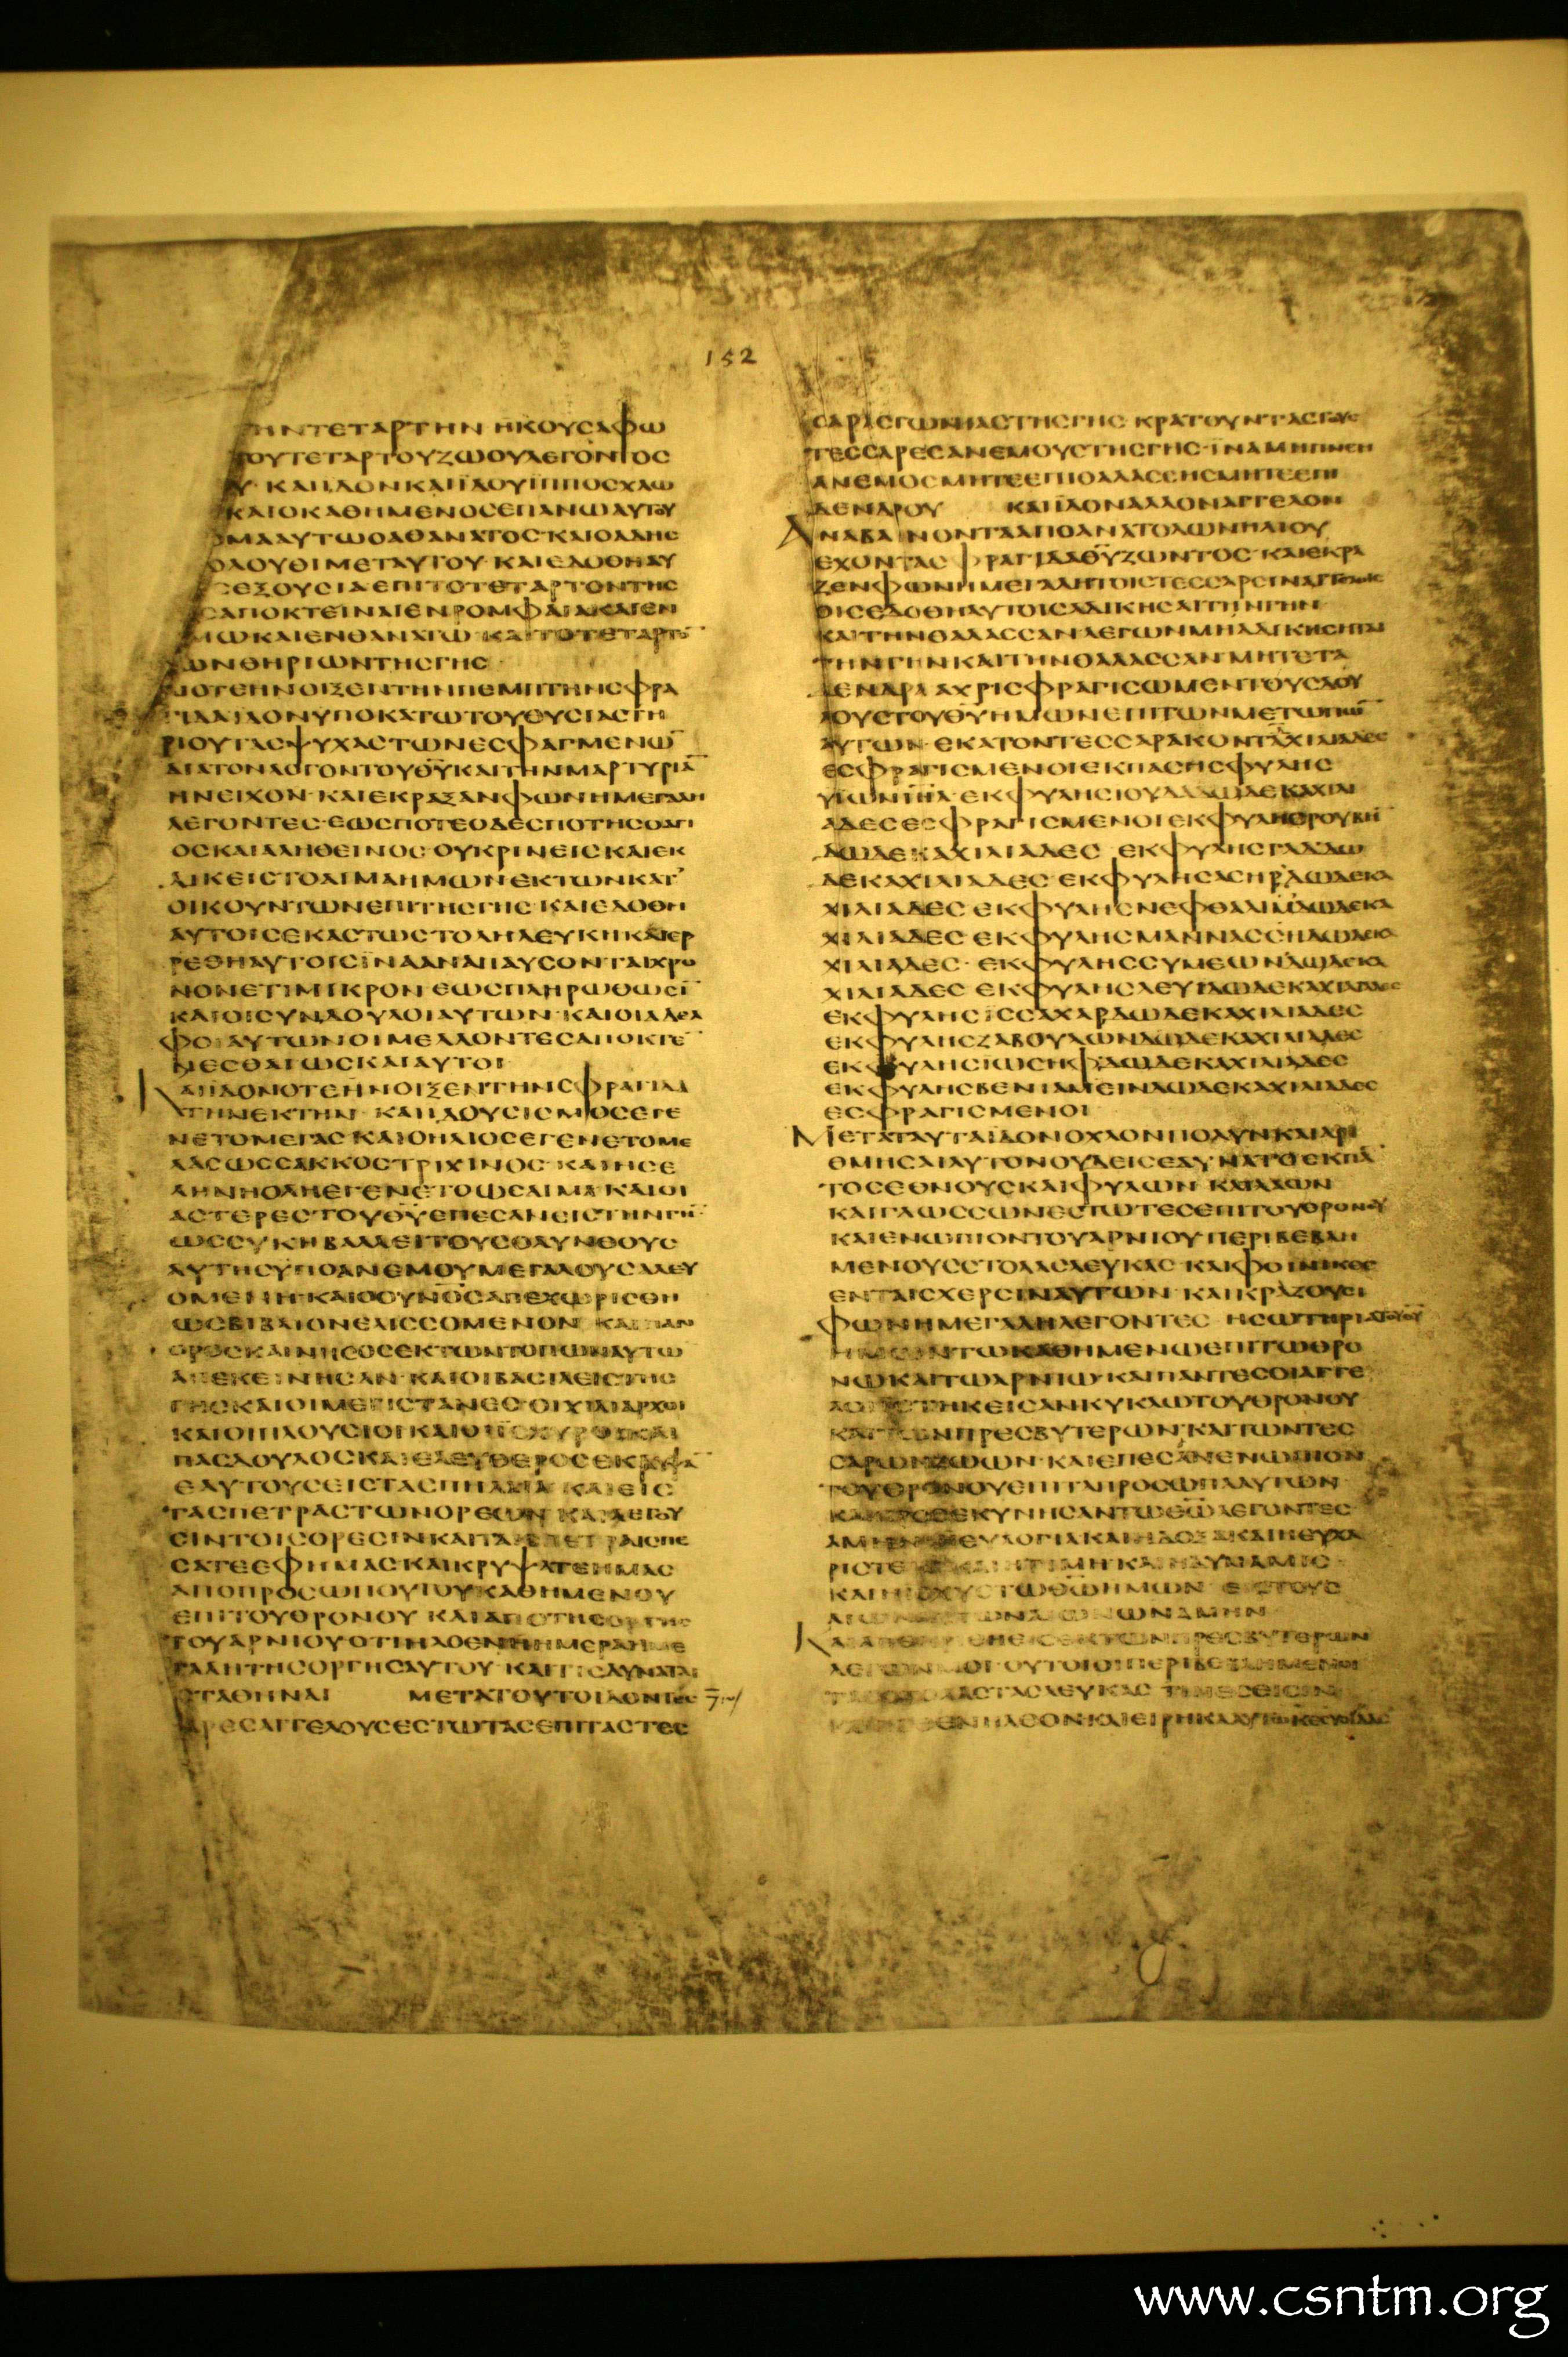 152
ΗΝΤΕΤΑΡΤΗΝ ΗΚΟΥΣΑΦΩ
ΟΥΤΕΤΑΡΤΟΥΖΩΟΥΛΕΓΟΝΤΟΣ
ΚΑΙΙΔΟΝΚΑΙΙΔΟΥΙΠΠΟΣΧΛΩ
ΚΑΙΟΚΑΘΗΜΕΝΟΣΕΠΑΝΩΑΥΤΟΥ
ΟΜΑΑΥΤΩΟΑΘΑΝΑΤΟΣ ΚΑΙΟΑΔΗΣ
ΟΛΟΥΘΙΜΕΤΑΥΤΟΥ ΚΑΙΕΔΟΘΗΑΥ
ΕΞΟΥΣΙΑΕΠΙΤΟΤΕΤΑΡΤΟΝΤΗΣ
ΑΠΟΚΤΕΙΝΑΙΕΝΡΟΜΦΑΙΑΚΑΙΕΝ
ΜΩΚΑΙΕΝΘΑΝΑΤΩ ΚΑΙΤΟΤΕΤΑΡΤΟ
ΩΝΘΗΡΙΩΝΤΗΣΓΗΣ
ΟΤΕΗΝΟΙΞΕΝΤΗΝΠΕΜΠΤΗΝΣΦΡΑ
ΓΙΔΑΙΔΟΝΥΠΟΚΑΤΩΤΟΥΘΥΣΙΑΣΤΗ
ΡΙΟΥΤΑΣΨΥΧΑΣΤΩΝΕΣΦΑΓΜΕΝΩ̅
ΔΙΑΤΟΝΛΟΓΟΝΤΟΥΘ̅Υ̅ΚΑΙΤΗΝΜΑΡΤΥΡΙΑ̅
ΗΝΕΙΧΟΝ ΚΑΙΕΚΡΑΞΑΝΦΩΝΗΜΕΓΑΛΗ
ΛΕΓΟΝΤΕΣ ΕΩΣΠΟΤΕΟΔΕΣΠΟΤΗΣΟΑΓΙ
ΟΣΚΑΙΑΛΗΘΕΙΝΟΣ ΟΥΚΡΙΝΕΙΣΚΑΙΕΚ
ΔΙΚΕΙΣΤΟΑΙΜΑΗΜΩΝΕΚΤΩΝΚΑΤ
ΟΙΚΟΥΝΤΩΝΕΠΙΤΗΣΓΗΣ ΚΑΙΕΔΟΘΗ
ΑΥΤΟΙΣΕΚΑΣΤΩΣΤΟΛΗΛΕΥΚΗΚΑΙΕΡ
ΡΕΘΗΑΥΤΟΙΣΙΝΑΑΝΑΠΑΥΣΟΝΤΑΙΧΡΟ
ΝΟΝΕΤΙΜΙΚΡΟΝ ΕΩΣΠΛΗΡΩΘΩΣΙ̅
ΚΑΙΟΙΣΥΝΔΟΥΛΟΙΑΥΤΩΝ ΚΑΙΟΙΑΔΕΛ
ΦΟΙΑΥΤΩΝΟΙΜΕΛΛΟΝΤΕΣΑΠΟΚΤΕ̅
ΝΕΣΘΑΙΩΣΚΑΙΑΥΤΟΙ
ΚΑΙΙΔΟΝΟΤΕΗΝΟΙΞΕΝΤΗΝΣΦΡΑΓΙΔΑ
ΤΗΝΕΚΤΗΝ ΚΑΙΙΔΟΥΣΙΣΜΟΣΕΓΕ
ΝΕΤΟΜΕΓΑΣ ΚΑΙΟΗΛΙΟΣΕΓΕΝΕΤΟΜΕ
ΛΑΣΩΣΣΑΚΚΟΣΤΡΙΧΙΝΟΣ ΚΑΙΗΣΕ
ΛΗΝΗΟΛΗΕΓΕΝΕΤΟΩΣΑΙΜΑ ΚΑΙΟΙ
ΑΣΤΕΡΕΣΤΟΥΘ̅Υ̅ΕΠΕΣΑΝΕΙΣΤΗΝΓΗ̅
ΩΣΣΥΚΗΒΑΛΛΕΙΤΟΥΣΟΛΥΝΘΟΥΣ
ΑΥΤΗΣΥΠΟΑΝΕΜΟΥΜΕΓΑΛΟΥΣΑΛΕΥ
ΟΜΕΝΗ ΚΑΙΟΟΥΝΟΣΑΠΕΧΩΡΙΣΘΗ
ΩΣΒΙΒΛΙΟΝΕΛΙΣΣΟΜΕΝΟΝ ΚΑΙΠΑΝ
ΟΡΟΣΚΑΙΝΗΣΟΣΕΚΤΩΝΤΟΠΩΝΑΥΤΩ
ΑΠΕΚΕΙΝΗΣΑΝ ΚΑΙΟΙΒΑΣΙΛΕΙΣΤΗΣ
ΓΗΣΚΑΙΟΙΜΕΓΙΣΤΑΝΕΣ ΟΙΧΙΛΙΑΡΧΟΙ
ΚΑΙΟΙΠΛΟΥΣΙΟΙΚΑΙΟΙΙΣΧΥΡΟΙΚΑΙ
ΠΑΣΔΟΥΛΟΣΚΑΙΕΛΕΥΘΕΡΟΣΕΚΡΥΨΑ̅
ΕΑΥΤΟΥΣΕΙΣΤΑΣΠΗΛΑΙΑ ΚΑΙΕΙΣ
ΤΑΣΠΕΤΡΑΣΤΩΝΟΡΕΩΝ ΚΑΙΛΕΓΟΥ
ΣΙΝΤΟΙΣΟΡΕΣΙΝΚΑΙΤΑΙΣΠΕΤΡΑΙΣΠΕ
ΣΑΤΕΕΦΗΜΑΣΚΑΙΚΡΥΨΑΤΕΗΜΑΣ
ΑΠΟΠΡΟΣΩΠΟΥΤΟΥΚΑΘΗΜΕΝΟΥ
ΕΠΙΤΟΥΘΡΟΝΟΥ ΚΑΙΑΠΟΤΗΣΟΡΓΗΣ
ΤΟΥΑΡΝΙΟΥΟΤΙΗΛΘΕΝΗΗΜΕΡΑΗΜΕ
ΓΑΛΗΤΗΣΟΡΓΗΣΑΥΤΟΥ ΚΑΙΤΙΣΔΥΝΑΤΑΙ
ΣΤΑΘΗΝΑΙ ΜΕΤΑΤΟΥΤΟΙΔΟΝΤΕΣ
ΑΡΕΣΑΓΓΕΛΟΥΣΕΣΤΩΤΑΣΕΠΙΤΑΣΤΕΣ
ΣΑΡΑΣΓΩΝΙΑΣΤΗΣΓΗΣ ΚΡΑΤΟΥΝΤΑΣΤΟΥΣ
ΤΕΣΣΑΡΕΣΑΝΕΜΟΥΣΤΗΣΓΗΣ ΙΝΑΜΗΠΝΕΗ
ΑΝΕΜΟΣΜΗΤΕΕΠΙΘΑΛΑΣΣΗΣΜΗΤΕΕΠΙ
ΔΕΝΔΡΟΥ ΚΑΙΙΔΟΝΑΛΛΟΝΑΓΓΕΛΟΝ
ΑΝΑΒΑΙΝΟΝΤΑΑΠΟΑΝΑΤΟΛΩΝΗΛΙΟΥ
ΕΧΟΝΤΑΣΦΡΑΓΙΔΑΘ̅Υ̅ΖΩΝΤΟΣ ΚΑΙΕΚΡΑ
ΖΕΝΦΩΝΗΜΕΓΑΛΗΤΟΙΣΤΕΣΣΑΡΣΙΝΑΓΓΕΛΟΙΣ
ΟΙΣΕΔΟΘΗΑΥΤΟΙΣΑΔΙΚΗΣΑΙΤΗΝΓΗΝ
ΚΑΙΤΗΝΘΑΛΑΣΣΑΝΛΕΓΩΝΜΗΑΔΙΚΗΣΗΤΑΙ
ΤΗΝΓΗΝΚΑΙΤΗΝΘΑΛΑΣΣΑΝ ΜΗΤΕΤΑ
ΔΕΝΔΡΑ ΑΧΡΙΣΦΡΑΓΙΣΩΜΕΝΤΟΥΣΔΟΥ
ΛΟΥΣΤΟΥΘ̅Υ̅ΗΜΩΝΕΠΙΤΩΝΜΕΤΩΠΩ̅
ΑΥΤΩΝ ΕΚΑΤΟΝΤΕΣΣΑΡΑΚΟΝΤΑΧΙΛΙΑΔΕΣ
ΕΣΦΡΑΓΙΣΜΕΝΟΙΕΚΠΑΣΗΣΦΥΛΗΣ
ΥΙΩΝΙ̅Η̅Λ̅ ΕΚΦΥΛΗΣΙΟΥΔΑΔΩΔΕΚΑΧΙΛΙ
ΑΔΕΣΕΣΦΡΑΓΙΣΜΕΝΟΙΕΚΦΥΛΗΣΡΟΥΒΗ
ΔΩΔΕΚΑΧΙΛΙΑΔΕΣ ΕΚΦΥΛΗΣΓΑΔΔΩ
ΔΕΚΑΧΙΛΙΑΔΕΣ ΕΚΦΥΛΗΣΑΣΗΡΔΩΔΕΚΑ
ΧΙΛΙΑΔΕΣ ΕΚΦΥΛΗΣΝΕΦΘΑΛΙΜΔΩΔΕΚΑ
ΧΙΛΙΑΔΕΣ ΕΚΦΥΛΗΣΜΑΝΝΑΣΣΗΔΩΔΕΚΑ
ΧΙΛΙΑΔΕΣ ΕΚΦΥΛΗΣΣΥΜΕΩΝΔΩΔΕΚΑ
ΧΙΛΙΑΔΕΣ ΕΚΦΥΛΗΣΛΕΥΙΔΩΔΕΚΑΧΙΛΙΑΔΕΣ
ΕΚΦΥΛΗΣΙΣΣΑΧΑΡΔΩΔΕΚΑΧΙΛΙΑΔΕΣ
ΕΚΦΥΛΗΣΖΑΒΟΥΛΩΝΔΩΔΕΚΑΧΙΛΙΑΔΕΣ
ΕΚΦΥΛΗΣΙΩΣΗΦΔΩΔΕΚΑΧΙΛΙΑΔΕΣ
ΕΚΦΥΛΗΣΒΕΝΙΑΜΕΙΝΔΩΔΕΚΑΧΙΛΙΑΔΕΣ
ΕΣΦΡΑΓΙΣΜΕΝΟΙ
ΜΕΤΑΤΑΥΤΑΙΔΟΝΟΧΛΟΝΠΟΛΥΝΚΑΙΑΡΙ
ΘΜΗΣΑΙΑΥΤΟΝΟΥΔΕΙΣΕΔΥΝΑΤΟΕΚΠΑ̅
ΤΟΣΕΘΝΟΥΣΚΑΙΦΥΛΩΝ ΚΑΙΛΑΩΝ
ΚΑΙΓΛΩΣΣΩΝΕΣΤΩΤΕΣΕΠΙΤΟΥΘΡΟΝΟΥ
ΚΑΙΕΝΩΠΙΟΝΤΟΥΑΡΝΙΟΥΠΕΡΙΒΕΒΛΗ
ΜΕΝΟΥΣΣΤΟΛΑΣΛΕΥΚΑΣ ΚΑΙΦΟΙΝΙΚΕΣ
ΕΝΤΑΙΣΧΕΡΣΙΝΑΥΤΩΝ ΚΑΙΚΡΑΖΟΥΣΙ
ΦΩΝΗΜΕΓΑΛΗΛΕΓΟΝΤΕΣ ΗΣΩΤΗΡΙΑ
ΤΩΚΑΘΗΜΕΝΩΕΠΙΤΩΘΡΟ
ΝΩΚΑΙΤΩΑΡΝΙΩ ΚΑΙΠΑΝΤΕΣΟΙΑΓΓΕ
ΤΗΚΕΙΣΑΝΚΥΚΛΩΤΟΥΘΡΟΝΟΥ
ΠΡΕΣΒΥΤΕΡΩΝ ΚΑΙΤΩΝΤΕΣ
ΣΑΡΩΝΖΩΩΝ ΚΑΙΕΠΕΣΑΝΕΝΩΠΙΟΝ
ΤΟΥΘΡΟΝΟΥΕΠΙΤΑΠΡΟΣΩΠΑΑΥΤΩΝ
ΕΚΥΝΗΣΑΝΤΩΘ̅Ω̅ΛΕΓΟΝΤΕΣ
ΑΜΗΝ ΕΥΛΟΓΙΑΚΑΙΗΔΟΞΑΚΑΙΗΕΥΧΑ
ΤΙΜΗΚΑΙΗΔΥΝΑΜΙΣ
ΚΑΙΗΙΣΧΥΣΤΩΘ̅Ω̅ΗΜΩΝ ΕΙΣΤΟΥΣ
ΩΝΩΝΑΜΗΝ
ΕΚΤΩΝΠΡΕΣΒΥΤΕΡΩΝ
ΟΥΤΟΙΟΙΠΕΡΙΒΕΒΛΗΜΕΝΟΙ
ΑΣΤΑΣΛΕΥΚΑΣ ΤΙΝΕΣΕΙΣΙΝ
ΗΛΘΟΝΚΑΙΕΙΡΗΚΑΑΥΤΩΚΕ
www.csntm.org